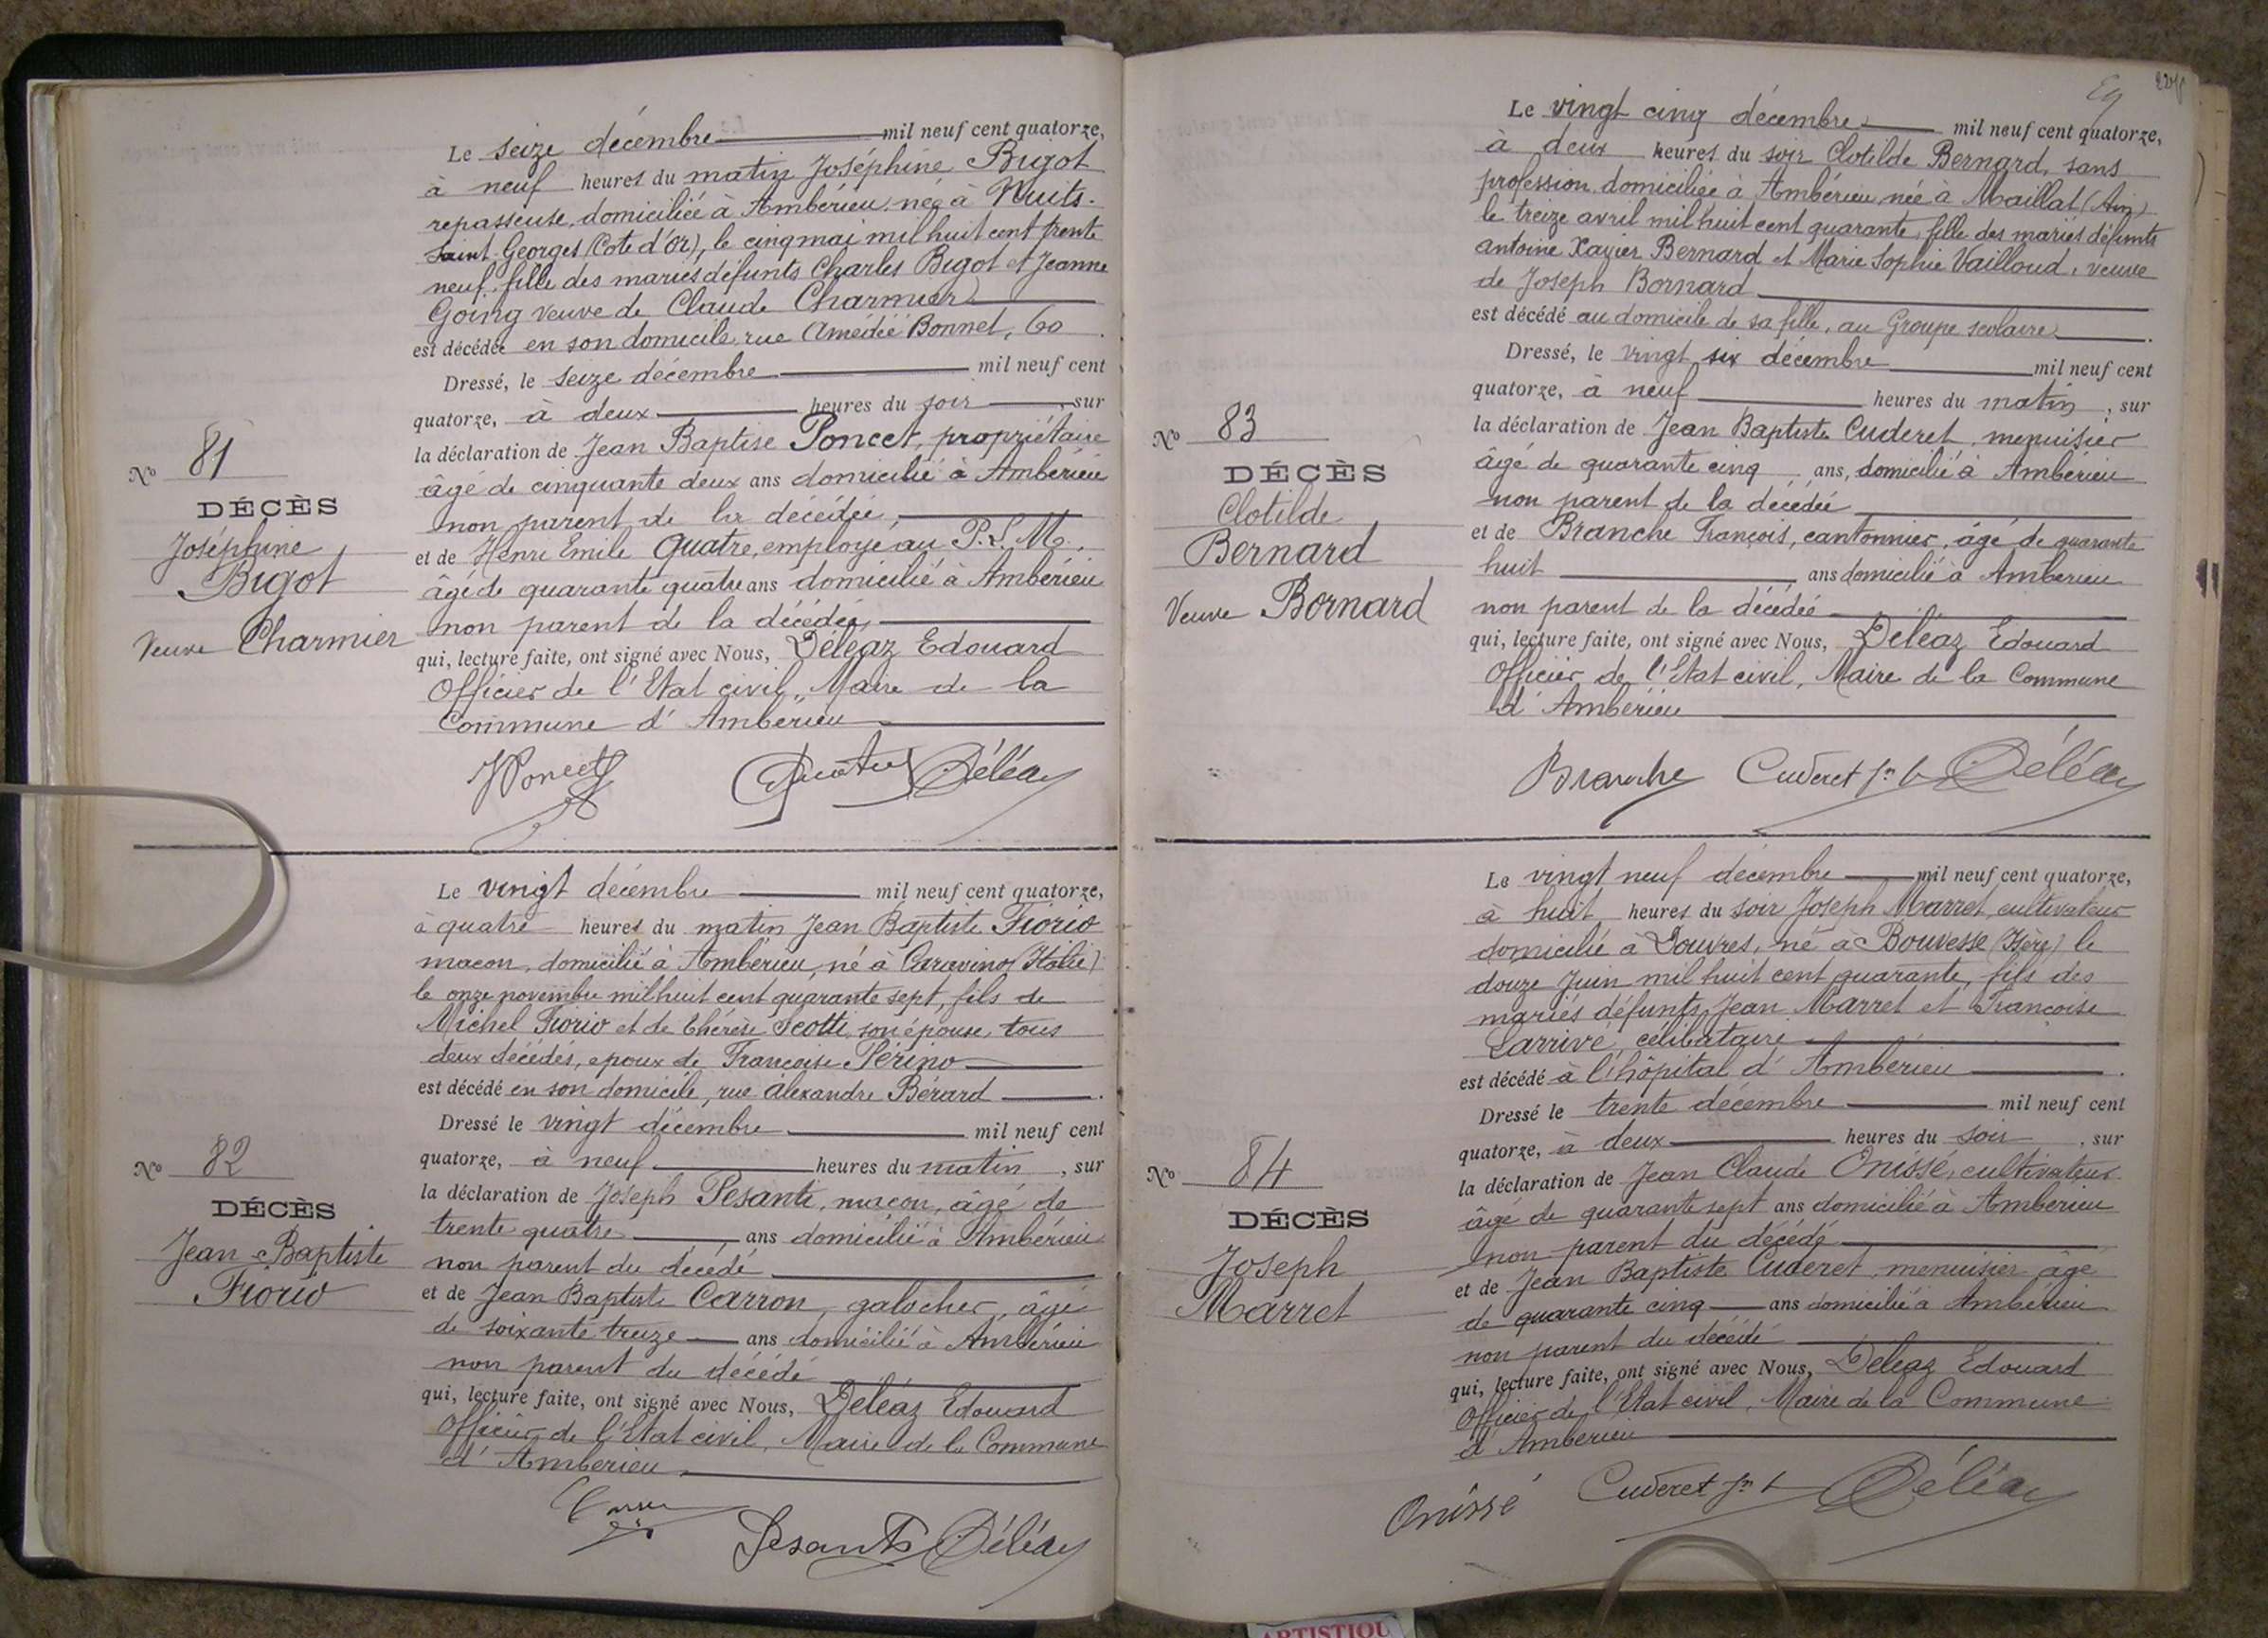 Le seize décembre mil neuf cent quatorze,
à neuf heures du matin Joséphine Bigot
repasseuse, domiciliée à Ambérieu, née à Nuits-
Saint-Georges (Cote d'Or), le cinq mai mil huit cent trente
neuf, fille des mariés défunts Charles Bigot et Jeanne
Going veuve de Claude Charmier
est décédée en son domicile, rue Amédée Bonnet, 60.
Dressé, le seize décembre mil neuf cent
quatorze, à deux heures du soir, sur
la déclaration de Jean Baptise Poncet, propriétaire
âgé de cinquante deux ans domicilié à Ambérieu
non parent de la décédée,
et de Henri Emile Quatre, employé au P.L.M.,
âgé de quarante quatre ans domicilié à Ambérieu
non parent de la décédée,
qui, lecture faite, ont signé avec Nous, Déléaz Edouard
Officier de l'Etat civil, Maire de la
Commune d'Ambérieu
JPoncet Quatre Déléaz
No 81
DÉCÈS
Joséphine
Bigot
Veuve Charmier
Le vingt décembre mil neuf cent quatorze,
à quatre heures du matin Jean Baptiste Fiorio
macon, domicilié à Ambérieu, né à Caravino (Italie)
le onze novembre mil huit cent quarante sept, fils de
Michel Fiorio et de Thérèse Scotti son épouse, tous
deux décédés, epoux de Françoise Périno
est décédé en son domicile, rue Alexandre Bérard.
Dressé le vingt décembre mil neuf cent
quatorze, à neuf heures du matin, sur
la déclaration de Joseph Pesanti, macon, âgé de
trente quatre ans domicilié à Ambérieu
non parent du décédé
et de Jean Baptiste Carron, galocher, âgé
de soixante treize ans domicilié à Ambérieu
non parent du décédé
qui, lecture faite, ont signé avec Nous, Déléaz Edouard
Officier de l'Etat civil, Maire de la Commune
d'Ambérieu
Pesanti Déléaz
No 82
DÉCÈS
Jean Baptiste
Fiorio
Le vingt cinq décembre mil neuf cent quatorze,
à deux heures du soir Clotilde Bernard, sans
profession domiciliée à Ambérieu née à Maillat (Ain)
le treize avril mil huit cent quarante, fille des mariés défunts
antoine Xavier Bernard et Marie Sophie Vailloud, veuve
de Joseph Bornard
est décédé au domicile de sa fille, au Groupe scolaire.
Dressé, le vingt six décembre mil neuf cent
quatorze, à neuf heures du matin, sur
la déclaration de Jean Baptiste Cuderet, menuisier
âgé de quarante cinq ans, domicilié à Ambérieu
non parent de la décédée
et de Branche François, cantonnier, âgé de quarante
huit ans domicilié à Ambérieu
non parent de la décédée
qui, lecture faite, ont signé avec Nous, Déléaz Edouard
Officier de l'Etat civil, Maire de la Commune
d'Ambérieu
Branche Cuderet Jn B Déléaz
No 83
DÉCÈS
Clotilde
Bernard
Veuve Bornard
Le vingt neuf décembre mil neuf cent quatorze,
à huit heures du soir Joseph Marret cultivateur
domicilié à Douvres, né à Bouvesse (Isère) le
douze Juin mil huit cent quarante, fils des
mariés défunts Jean Marret et Françoise
Larrivé, célibataire
est décédé à l'hôpital d'Ambérieu.
Dressé le trente décembre mil neuf cent
quatorze, à deux heures du soir, sur
la déclaration de Jean Claude Onissé, cultivateur
âgé de quarante sept ans domicilié à Ambérieu
non parent du décédé
et de Jean Baptiste Cuderet, menuisier âgé
de quarante cinq ans domicilié à Ambérieu
non parent du décédé
qui, lecture faite, ont signé avec Nous, Déléaz Edouard
Officier de l'Etat civil, Maire de la Commune
d'Ambérieu
Onissé Cuderet Jn B Déléaz
No 84
DÉCÈS
Joseph
Marret
ARTISTIQU